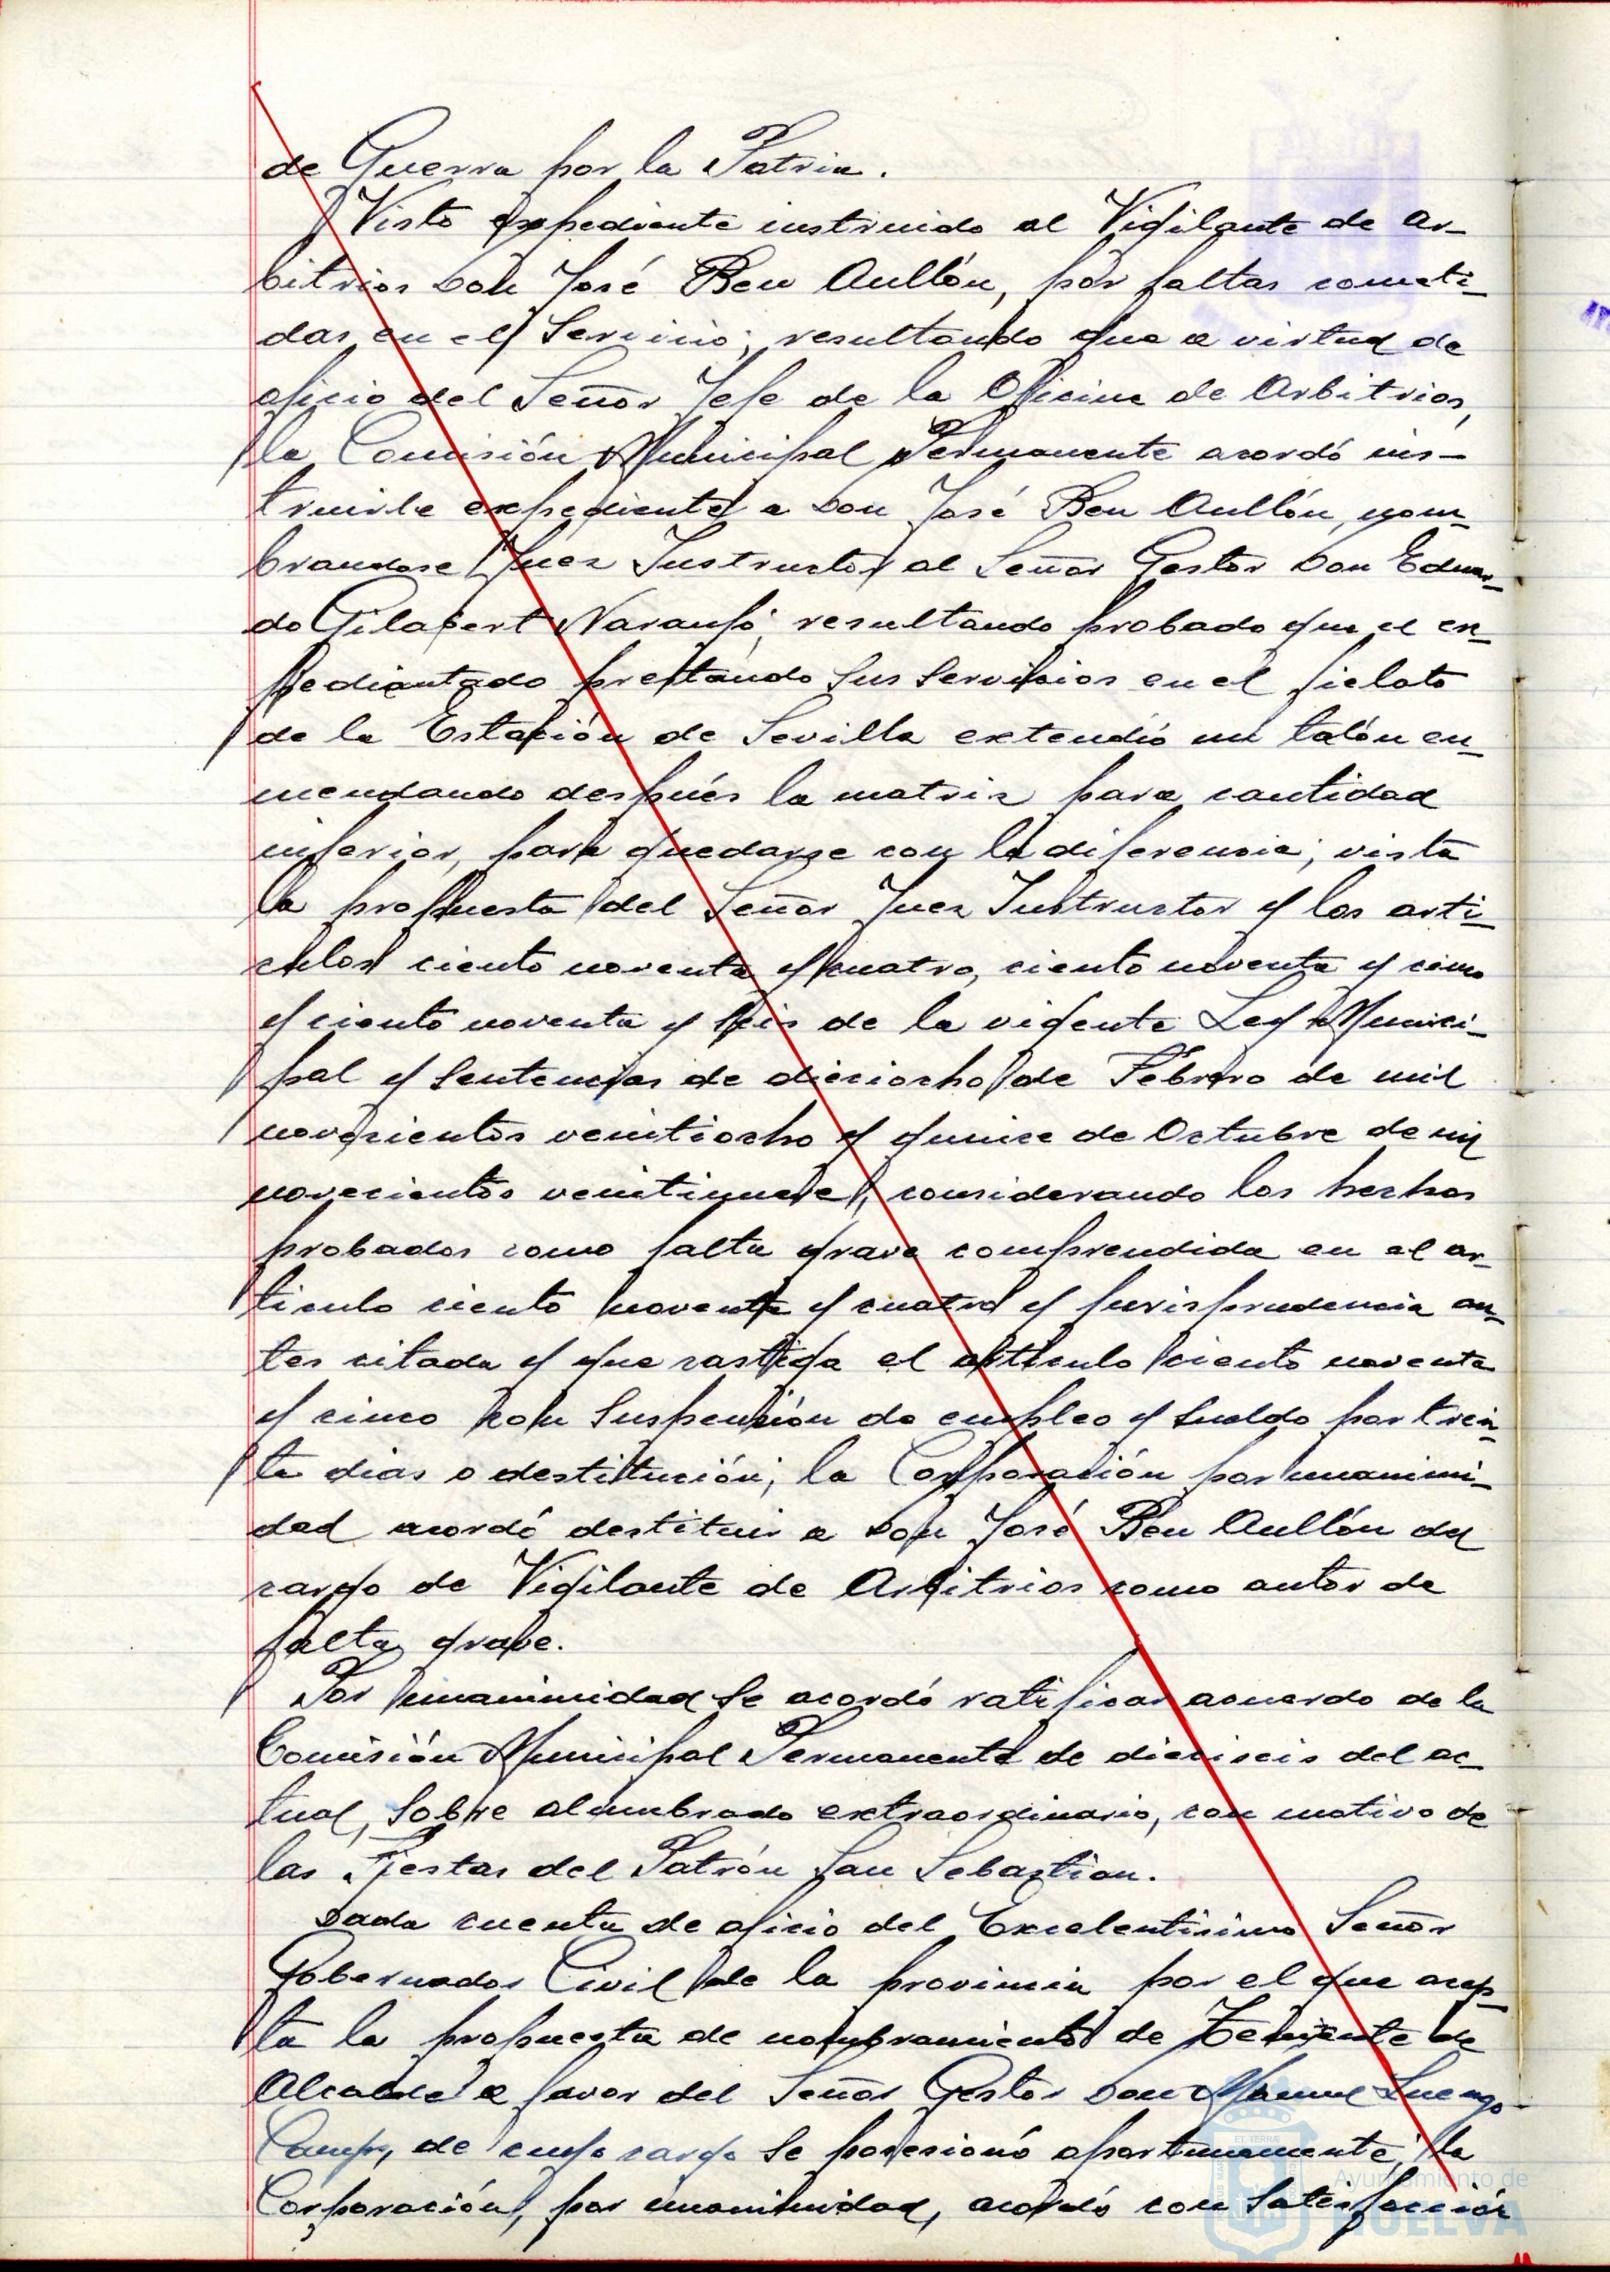 de Guerra por la Patria.
Visto expediente instruido al Vigilante de Ar-
bitrios Don José Beu Aullón, por faltas cometi-
das en el servicio; resultando que a virtud de
oficio del Señor Jefe de la Oficina de Arbitrios,
la Comisión Municipal Permanente acordó ins-
truirle expediente a Don José Beu Aullón, nom-
brandose Juez Instructor al Señor Gestor Don Eduar-
do Gilabert Naranjo; resultando probado que el ex-
pedientado prestando sus servicios en el fielato
de la Estación de Sevilla extendió un talón en-
mendando después la matriz para cantidad
inferior, para quedarse con la diferencia; vista
la propuesta del Señor Juez Instructor y los arti-
culos ciento noventa y cuatro, ciento noventa y cinco
y ciento noventa y seis de la vigente Ley Munici-
pal y Sentencias de dieciocho de Febrero de mil
novecientos veintiocho y quince de Octubre de mil
novecientos veintinueve, considerando los hechos
probados como falta grave comprendida en el ar-
ticulo ciento noventa y cuatro y jurisprudencia an-
tes citada y que castiga el artículo ciento noventa
y cinco con suspensión de empleo y sueldo por trein-
ta dias o destitución; la Corporación por unanimi-
dad acordó destituir a Don José Beu Aullón del
cargo de Vigilante de Arbitrios como autor de
falta grave.
Por unanimidad se acordó ratificar acuerdo de la
Comisión Municipal Permanente de dieciseis del ac-
tual, sobre alumbrado extraordinario, con motivo de
las Fiestas del Patrón San Sebastian.
Dada cuenta de oficio del Excelentisimo Señor
Gobernador Civil de la provincia por el que acep-
ta la propuesta de nombramiento de Teniente de
Alcalde a favor del Señor Gestor Don Manuel Luengo
Campos, de cuyo cargo se posesionó oportunamente; la
Corporación, por unanimidad, acordó con satisfacción
Ayuntamiento de
HUELVA